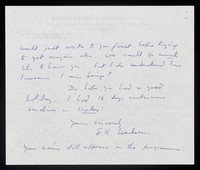 would just write to you first before trying
to get anyone else. We would so much
like to have you but I do understand how
I am being!
I do hope you had a good
holiday. I had 14 days continuous
sunshine in
Yours sincerely
J.H.
Your name still appears on the programme!